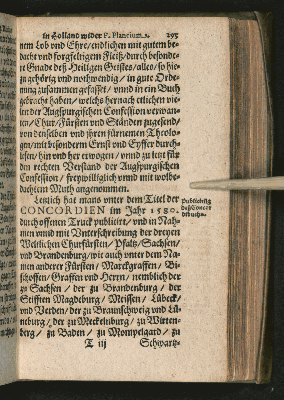 in Holland wider P. Plancium. 295
nem Lob vnd Ehre/ endlichen mit gutem be-
dacht vnd sorgfeltigem Fleiß/ durch besonde-
re Gnade deß Heiligen Geistes/ alles/ so hie-
zu gehörig vnd nothwendig/ in gute Orde-
nung zusammen gefasset/ vnnd in ein Buch
gebracht haben/ welches hernach etlichen vie-
len der Augspurgischen Confession verwan-
ten/ Chur/ Fürsten vnd Ständen zugesend/
von denselben vnd jhren fürnemen Theolo-
gen/ mit besonderm Ernst vnd Eyffer durch-
lesen/ hin vnd her erwogen/ vnnd zu letzt für
den rechten Verstand der Augspurgischen
Confession/ freywilliglich vnnd mit wolbe-
dachtem Muth angenommen.
Letzlich hat mans vnter dem Titel der
CONCORDIEN im Jahr 1580.
durch offenen Truck publicirt/ vnd in Nah-
men vnnd mit Vnterschreibung der dreyen
Weltlichen Churfürsten/ Pfaltz/ Sachsen/
vnd Brandenburg/ wie auch vnter dem Na-
men anderer Fürsten/ Marckgraffen/ Bi-
schoffen/ Graffen vnd Herrn/ nemblich der
zu Sachsen/ der zu Brandenburg/ der
Stifften Magdeburg/ Meissen/ Lübeck/
vnd Verden/ der zu Braunschweig vnd Lü-
neburg/ der zu Mecklnburg/ zu Würten-
berg/ zu Baden/ zu Mompelgard/ zu
T iij Schwartz-